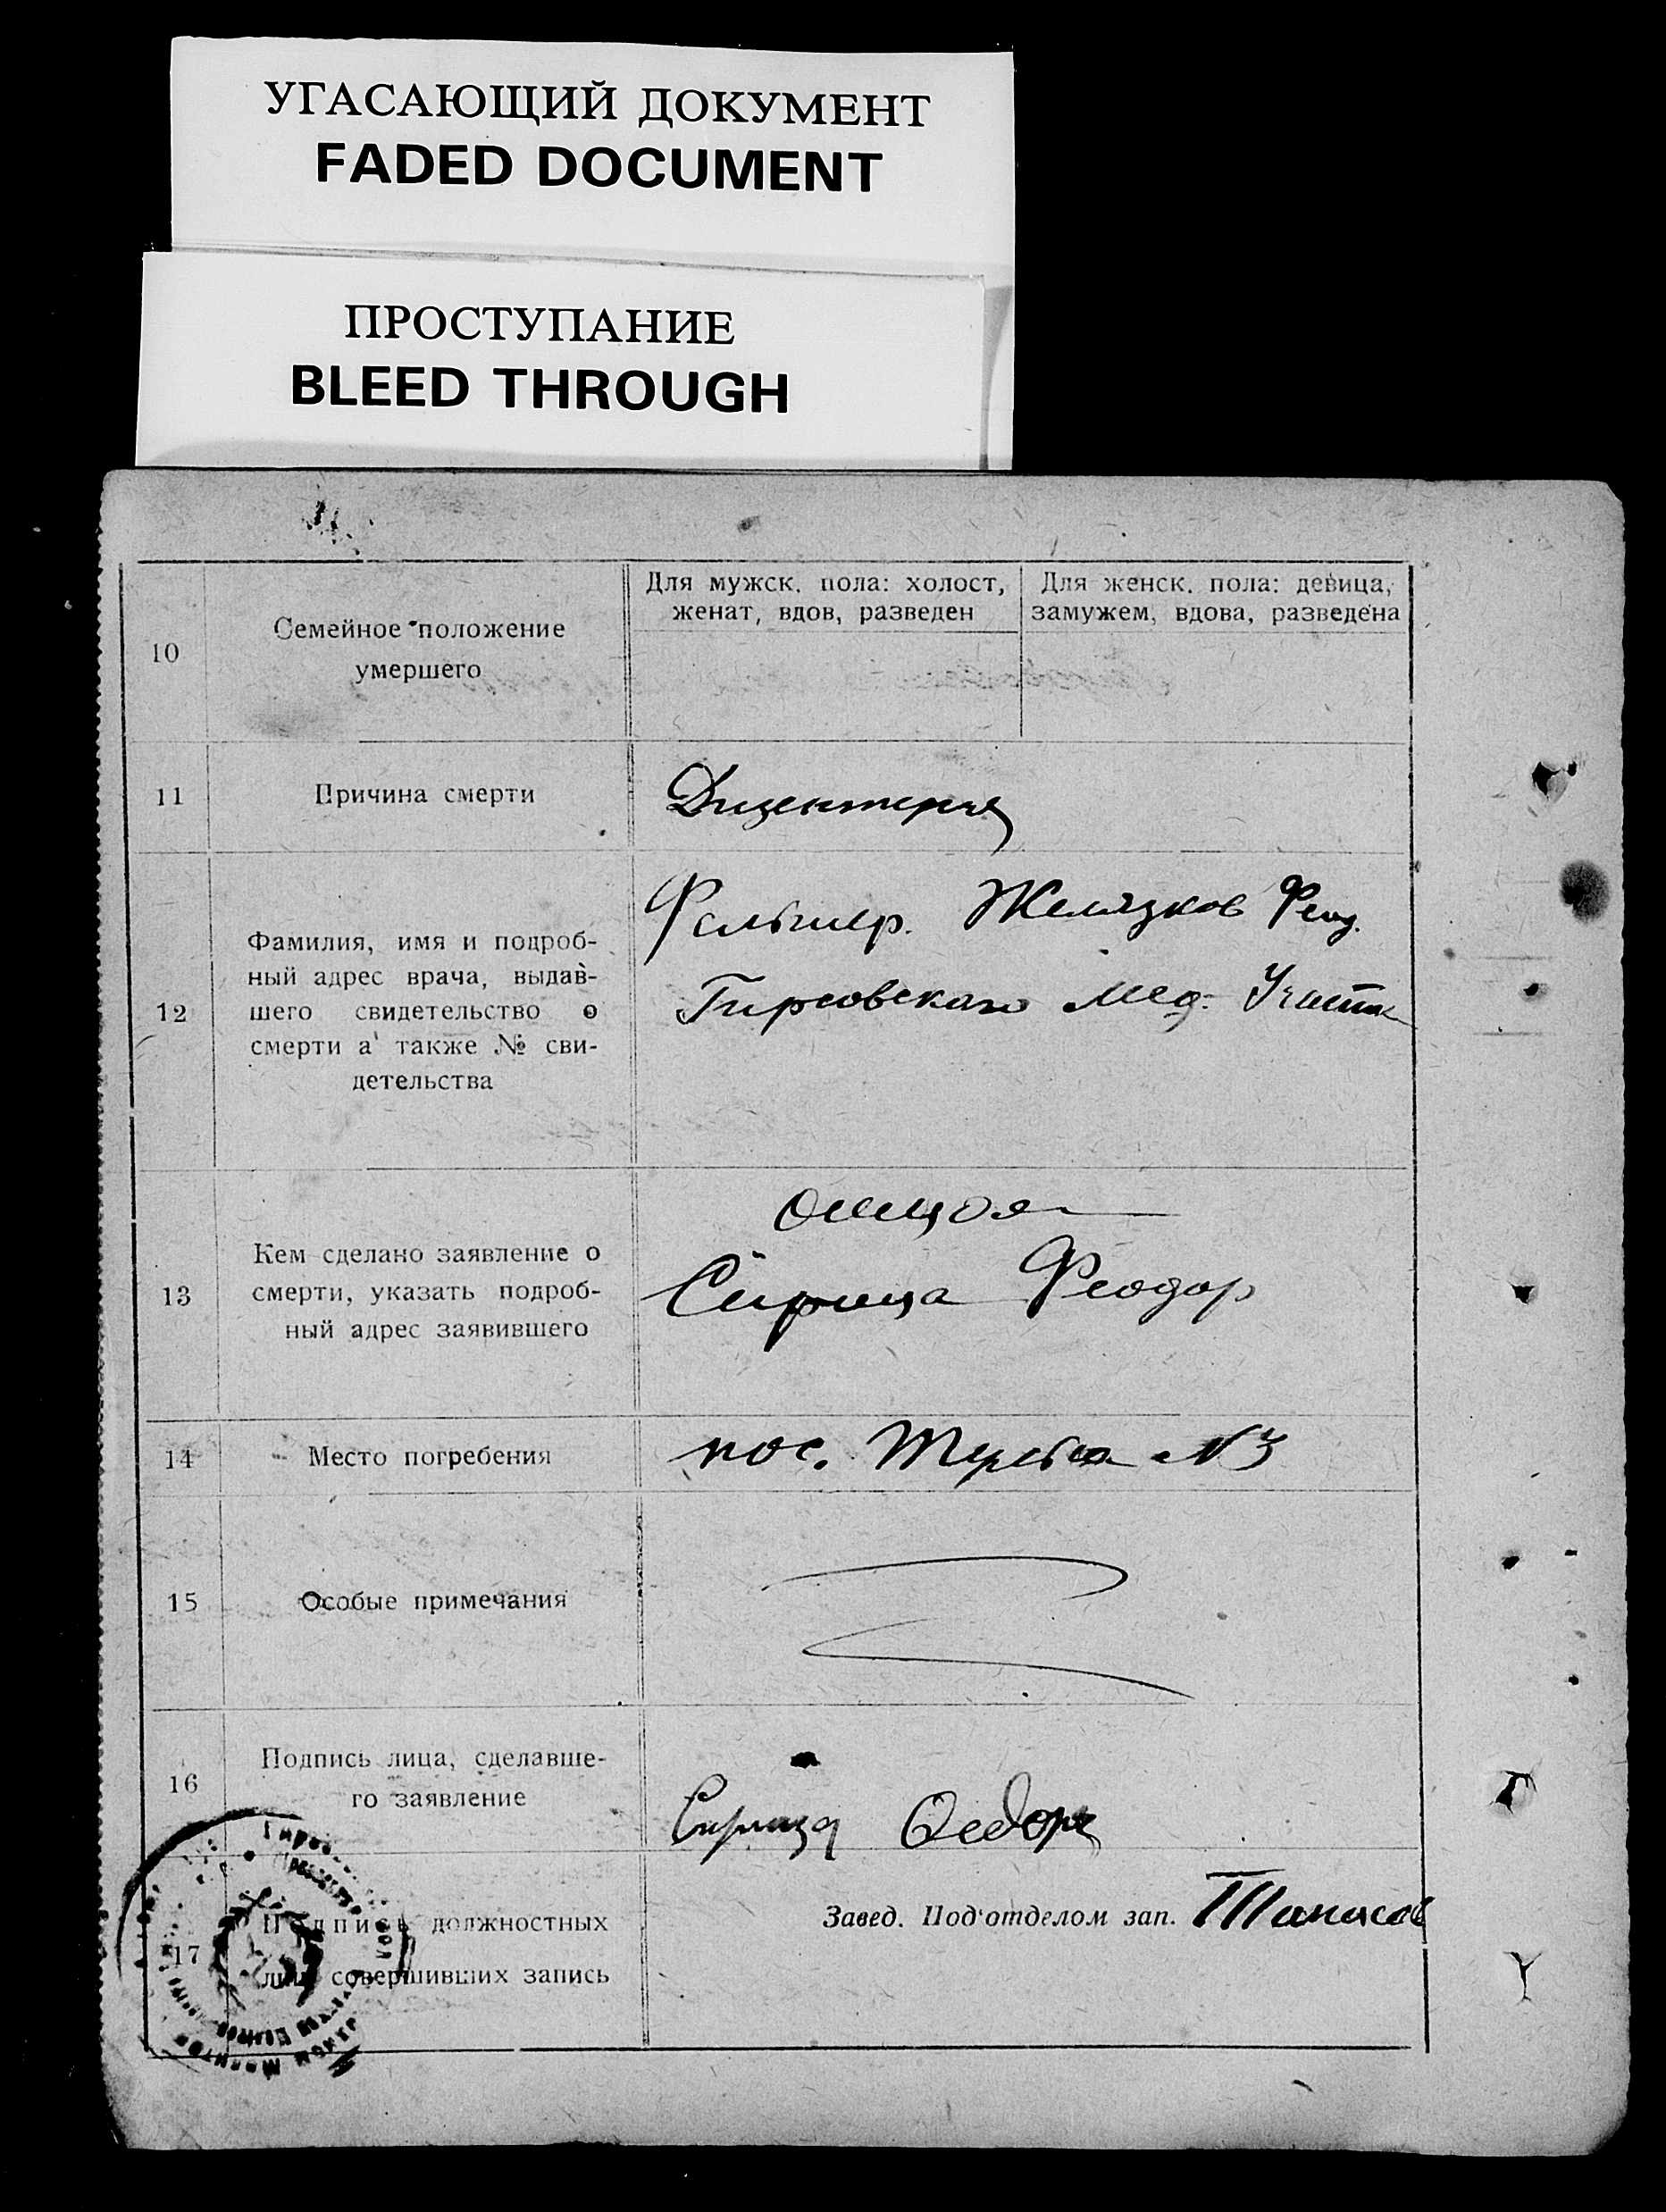 УГАСАЮЩИЙ ДОКУМЕНТ
FADED DOCUMENT
ПРОСТУПАНИЕ
BLEED THROUGH
10
Семейное положение
умершего
Для мужск. пола: холост,
женат, вдов, разведен
Для женск. пола: девица,
замужем, вдова, разведена
11
Причина смерти
Дизентерия
12
Фамилия, имя и подроб-
ный адрес врача, выдав-
шего свидетельство о
смерти а также № сви-
детельства
Фельшер. Желязков Феод.
Гирсовского Мед. Участк
13
Кем сделано заявление о
смерти, указать подроб-
ный адрес заявившего
Сирица Феодор
14
Место погребения
пос. №3
15
Особые примечания
16
Подпись лица, сделавше-
го заявление
Сирица Федоръ
17
Подпись должностных
лиц совершивших запись
Завед. Под'отделом зап.